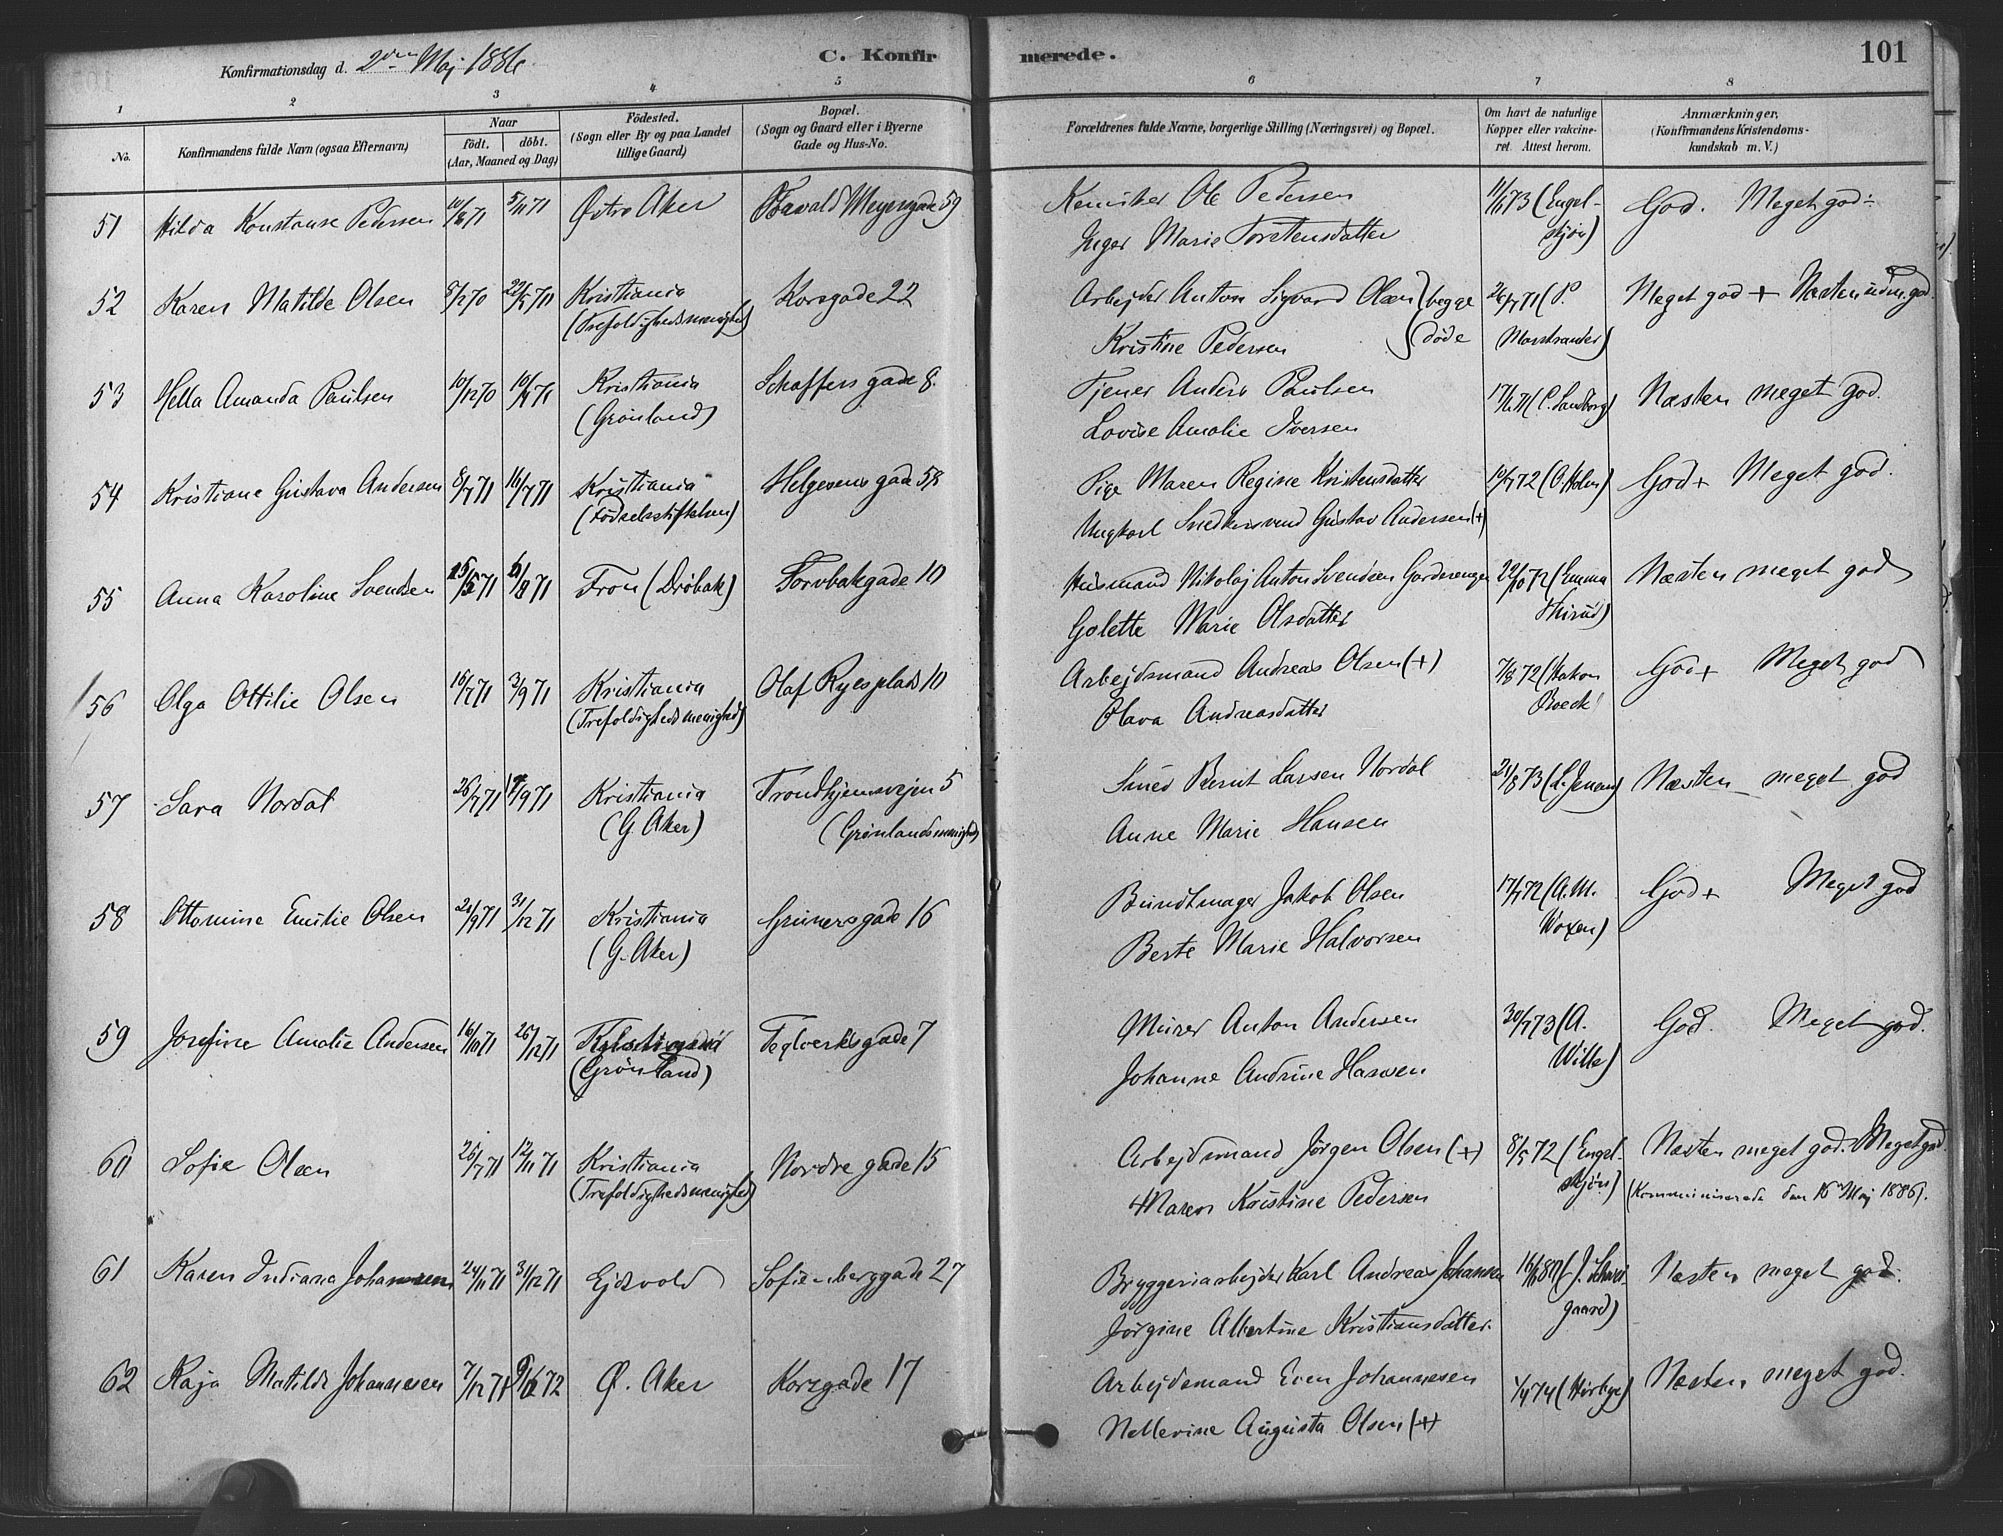 Konfirmationsdag d. 2den Maj 1886
C. Konfirmerede.
101
1 2 3 4 5 6 7 8
No.
Konfirmandens fulde Navn (ogsaa Efternavn)
Naar
födt. döbt.
(Aar, Maaned og Dag)
Födested.
(Sogn eller By og paa Landet
tillige Gaard)
Bopæl.
(Sogn og Gaard eller i Byerne
Gade og Hus-No.
Forældrenes fulde Navne, borgerlige Stilling (Næringsvei) og Bopæl.
Om havt de naturlige
Kopper eller vakcine-
ret. Attest herom.
Anmærkninger,
(Konfirmandens Kristendoms-
kundskab m. V.)
51 Hilda Konstanse Pedersen 5/11 71 Østre Aker Thorvald Meyersgade 59 Ole Pedersen 11/1 73 (Engel- God. Meget god÷
Inger Marie Torstensdatter skjøn)
52 Karen Matilde Olsen Kristiania Korsgade 22 Arbejder Anton Sigvard Olsen begge 26/7 71 (P. Meget god + Næsten udm. god.
(Trefoldighedsmenighed) Kristine Pedersen døde Marstrander)
53 Hella Amanda Paulsen 10/12 70 Kristiania Schaffers gade 8. Tjener Anders Paulsen (C. Sandborg) Næsten meget god.
(Grønland) Lovise Amalie Iversen
54 Kristiane Gustava Andersen 8/7 71 16/7 71 Kristiania Helgesens gade 58 Pige Maren Regine Kristensdatter (O. Holm) God + Meget god.
(Fødselsstiftelsen) Ungkarl Snedkersvend Gustav Andersen (+)
55 Anna Karoline Svendsen 6/8 71 Fron (Drøbak) Torvbakgade 10 Husmand Nikolaj Anton Svendsen Gardsengen 22/10 72 (Emma Næsten meget god
Golette Marie Olsdatter Thirud)
56 Olga Ottilie Olsen 16/7 71 3/9 71 Kristiania Olaf Ryes plads 10 Arbejdsmand Andreas Olsen (+) 7/8 72 (Hakon God + Meget god
(Trefoldighedsmenighed) Olava Andreasdatter Boeck)
57 Sara Nordal 26/7 71 17/9 71 Kristiania Trondhjemsvejen 5 Smed Bernt Larsen Nordal 21/8 73 (L. Jensen) Næsten meget god
(G. Aker) (Grønlandsmenighed) Anne Marie Hansen
58 Ottomine Emilie Olsen 21/9 71 31/12 71 Kristiania Grünersgade 16 Bundtmager Jakob Olsen 17/7 72 (A.M. God + Meget god
(G. Aker) Berte Marie Halvorsen Woxen)
59 Josefine Amalie Andersen 16/10 71 26/12 71 Kristiania Teglverksgade 7 Murer Anton Andersen 30/7 73 (A. God. Meget god.
(Grønland) Johanne Andrine Hansen Wille)
60 Sofie Olsen 26/7 71 12/11 71 Kristiania Nordre gade 15 Arbejdsmand Jørgen Olsen (+) 8/5 72 (Engel- Næsten meget god. Meget god.
(Trefoldighedsmenighed) Maren Kristine Pedersen skjøn) (Kommunicerede den 16de Maj 1886).
61 Karen Indiana Johannesen 24/11 71 31/12 71 Ejdsvold Sofienberggade 27 Bryggeriarbejder Karl Andreas Johansen (J. Schwei- Næsten meget god.
Jørgine Albertine Kristiansdatter. gaard)
62 Kaja Matilde Johannesen 7/12 71 Ø. Aker Korsgade 17 Arbejdsmand Even Johannesen 1/4 74 (Hørbye) Næsten meget god.
Nellevine Augusta Olsen (+)